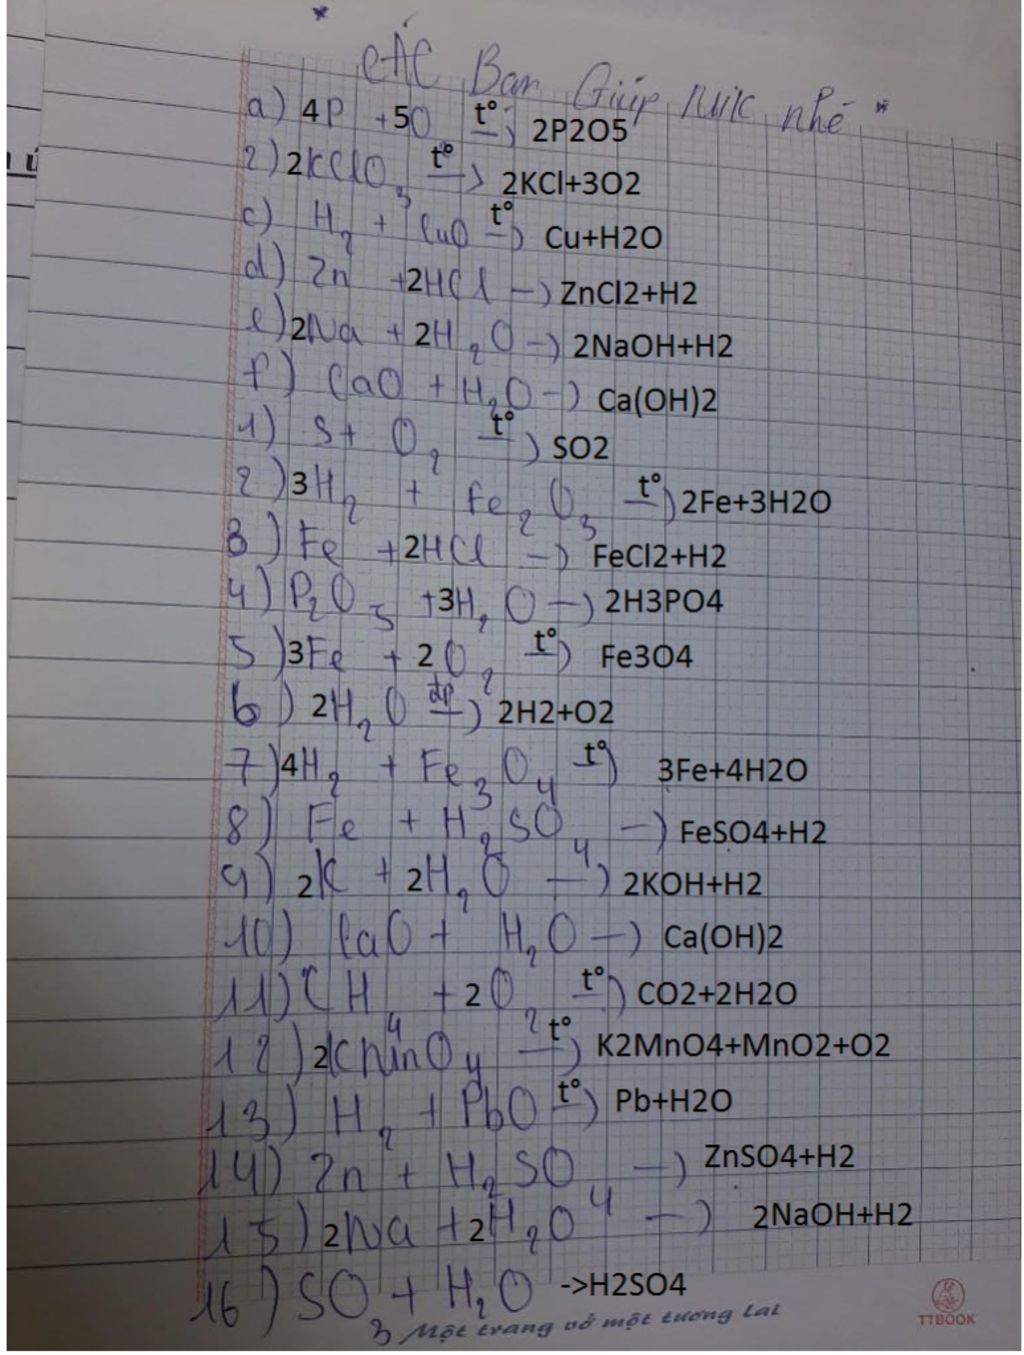 CÁC Bạn Giúp Mik nhé *
a) 4P + 5O t° → 2P2O5
2) 2KClO3 t° → 2KCl+3O2
c) H2 + CuO t° → Cu+H2O
d) Zn +2HCl → ZnCl2+H2
e) 2Na + 2H2O → 2NaOH+H2
f) CaO + H2O → Ca(OH)2
1) S + O2 t° → SO2
2) 3H2 + Fe2O3 t° → 2Fe+3H2O
3) Fe +2HCl → FeCl2+H2
4) P2O5 +3H2O → 2H3PO4
5) 3Fe + 2O2 t° → Fe3O4
6) 2H2O đp → 2H2+O2
7) 4H2 + Fe3O4 t° → 3Fe+4H2O
8) Fe + H2SO4 → FeSO4+H2
9) 2K +2H2O → 2KOH+H2
10) CaO + H2O → Ca(OH)2
11) CH4 +2O2 t° → CO2+2H2O
12) 2KMnO4 t° → K2MnO4+MnO2+O2
13) H2 + PbO t° → Pb+H2O
14) Zn + H2SO4 → ZnSO4+H2
15) 2Na +2H2O → 2NaOH+H2
16) SO3 + H2O ->H2SO4
Một trang vở một tương lai
TTBOOK